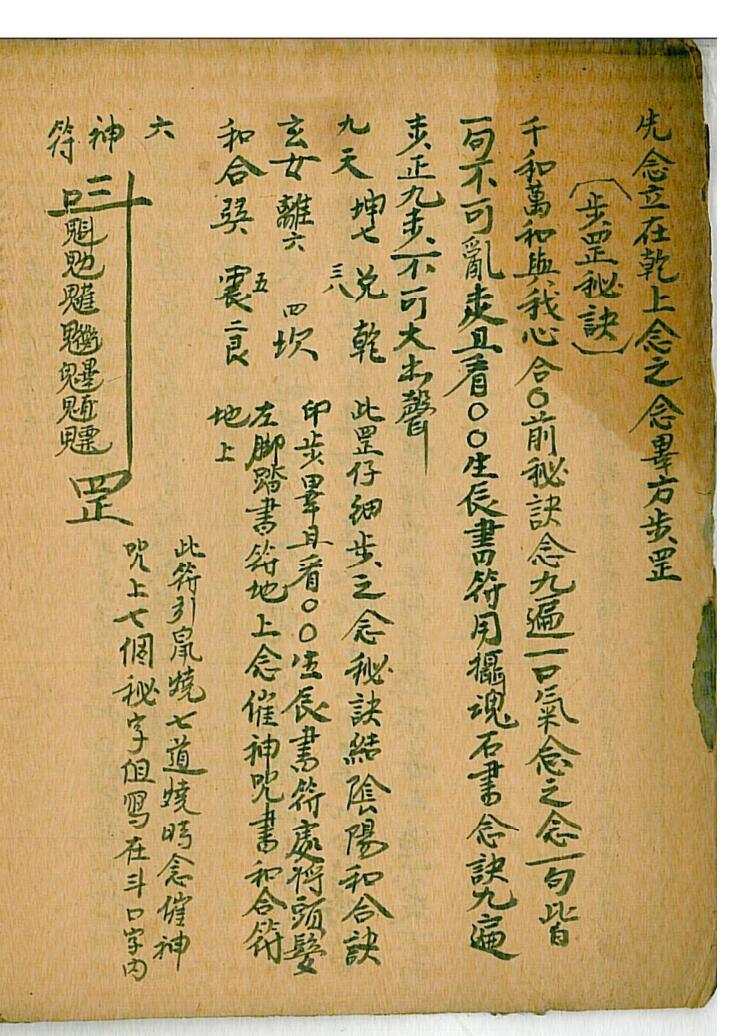 先念立在乾上念之念畢方步罡
〔步罡秘訣〕
千和萬和與我心合〇前秘訣念九遍一口氣念之念一句皆
一句不可亂走且看〇〇生辰書符用攝魂石書念訣九遍
走正九步不可大出聲
九天 坤七 兑 乾 此罡仔細步之念秘訣結陰陽和合訣
三八
玄女 離六 四坎 印步畢且看〇〇生辰書符處將頭髮
左脚踏書符地上念催神咒書和合符
和合 五 震 二艮 地上
六
神
符
魁𩲃魓
罡
此符引鼠燒七道燒時念催神
咒上七個秘字但寫在斗口字内